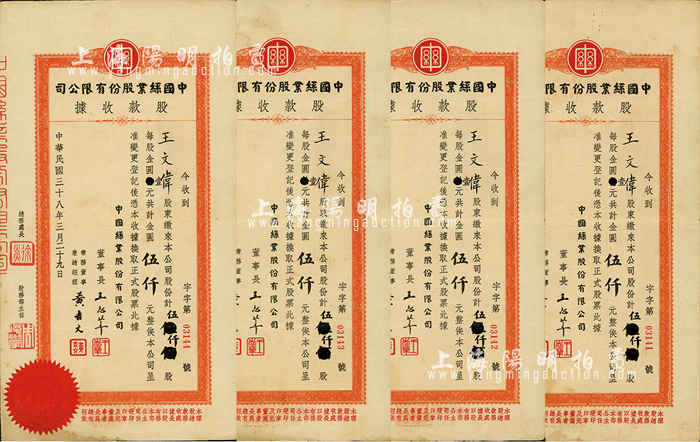 上海陽明拍賣
www.yangmingauction.com
中國絲業股份有限公司
股款收據
今收到
王文偉股東繳來本公司股份計伍仟股
每股金圓壹元共計金圓伍仟元整俟本公司呈
准變更登記後憑本收據換取正式股票此據
中國絲業股份有限公司
董事長
常務董事兼總經理 黃吉文
中華民國三十八年三月二十九日
總務處長
股務部主任
字第03144號
中國絲業股份有限
股款收據
今收到
王文偉股東繳來本公司股份計伍仟股
每股金圓壹元共計金圓伍仟元整俟本公司呈
准變更登記後憑本收據換取正式股票此據
中國絲業股份有限公司
董事長
常務董事
字第03143號
中國絲業股份有限
股款收據
今收到
王文偉股東繳來本公司股份計伍仟股
每股金圓壹元共計金圓伍仟元整俟本公司呈
准變更登記後憑本收據換取正式股票此據
中國絲業股份有限公司
董事長
常務董事
字第03142號
中國絲業股份有限
股款收據
今收到
王文偉股東繳來本公司股份計伍仟股
每股金圓壹元共計金圓伍仟元整俟本公司呈
准變更登記後憑本收據換取正式股票此據
中國絲業股份有限公司
董事長
常務董事
字第03141號
上海陽明拍賣
www.yangmingauction.com